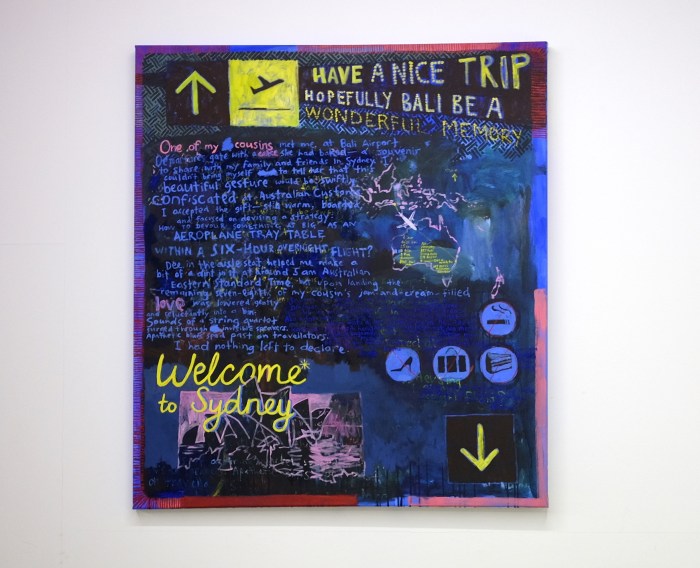 HAVE A NICE TRIP
HOPEFULLY BALI BE A
WONDERFUL MEMORY
One of my cousins met me at Bali Airport
Departure gate with a she had a souvenir
to share with my family and friends in Sydney. I
couldn't bring myself to tell her that this
beautiful gesture would be swiftly
confiscated at Australian Customs.
I accepted the gift, still warm,
and focused on devising a strategy:
HOW TO DEVOUR SOMETHING AS BIG AS AN
AEROPLANE TRAY TABLE
WITHIN A SIX-HOUR OVERNIGHT FLIGHT?
Dee in the aisle seat helped me make a
bit of a dint in it at around 5am Australian
Eastern Standard Time, but upon landing the
remaining seven-eighths of my cousin's jam-and-cream-filled
love was lowered gently
and reluctantly into a bin.
Sounds of a string quartet
through speakers.
Apathetic sped past on travellators.
I had nothing left to declare.
Welcome*
to Sydney